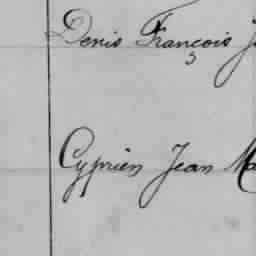 Denis François J
Cyprien Jean Ma